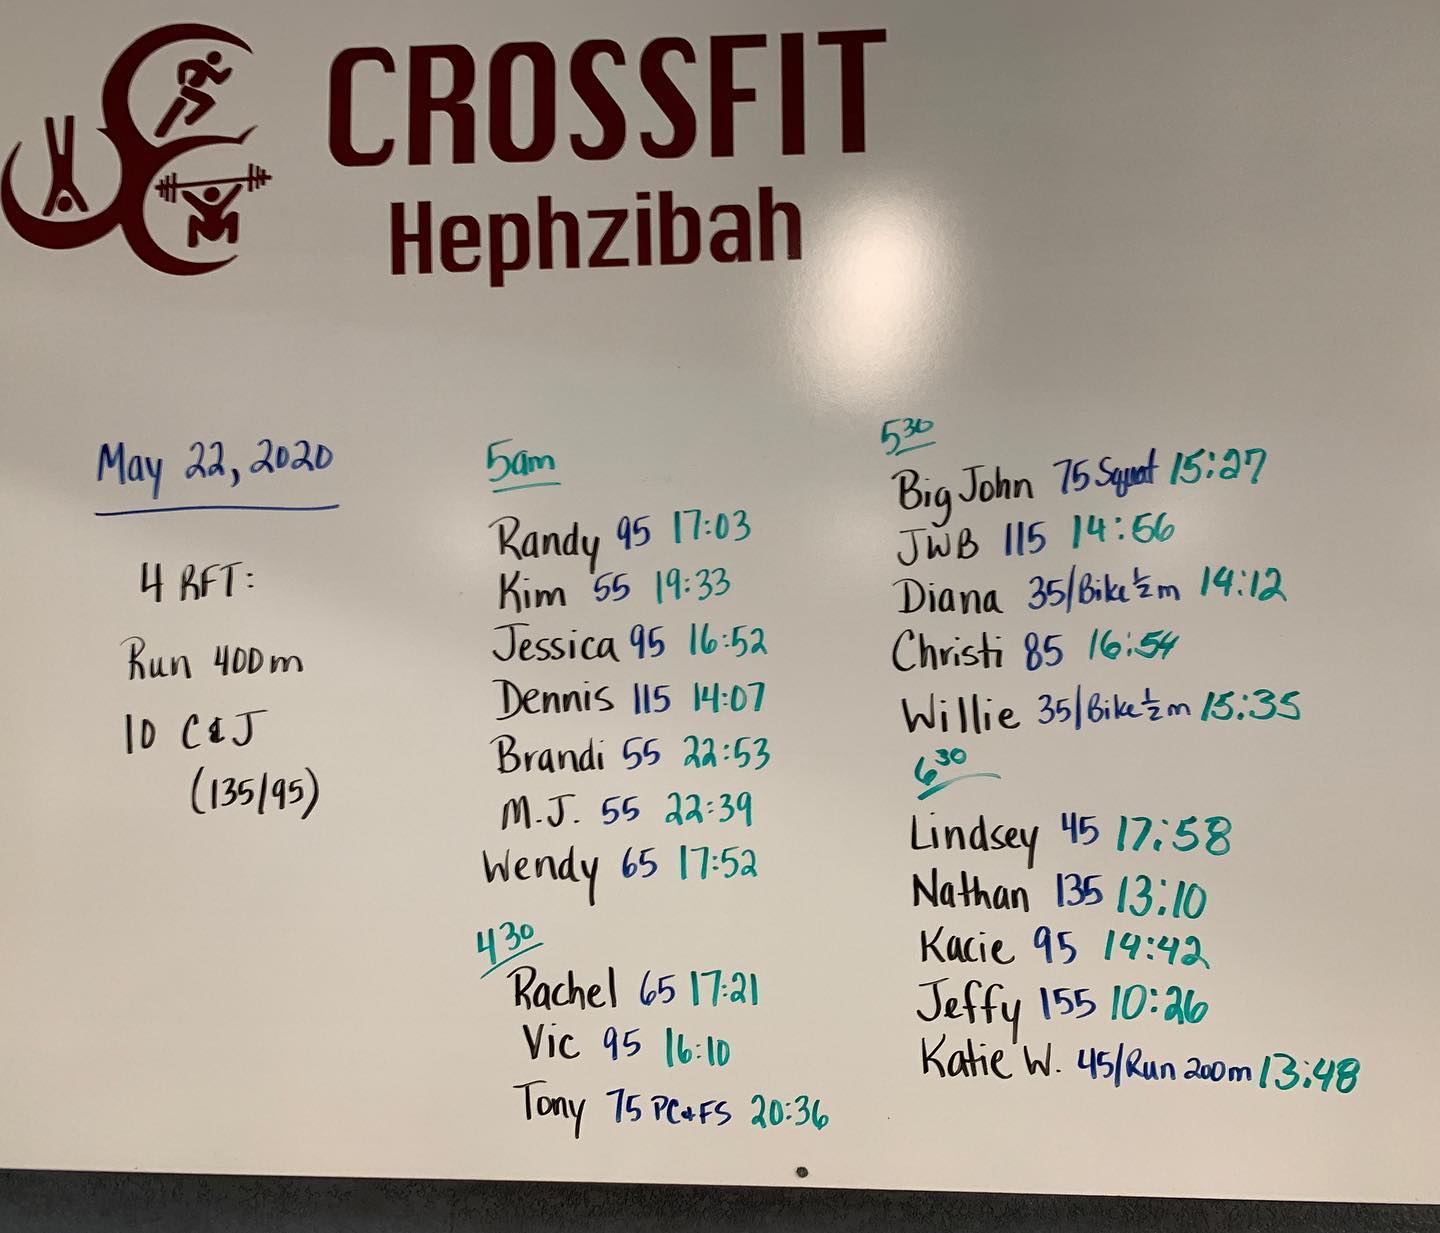 CROSSFIT
Hephzibah
May 22, 2020
4 RFT:
Run 400m
10 C&J
(135/95)
5am
Randy 95 17:03
Kim 55 19:33
Jessica 95 16:52
Dennis 115 14:07
Brandi 55 22:53
M.J. 55 22:39
Wendy 65 17:52
4 30
Rachel 65 17:21
Vic 95 16:10
Tony 75 PC&FS 20:36
5 30
Big John 75 Squat 15:27
JWB 115 14:56
Diana 35/Bike ½ m 14:12
Christi 85 16:54
Willie 35/Bike ½ m 15:35
6 30
Lindsey 45 17:58
Nathan 135 13:10
Kacie 95 14:42
Jeffy 155 10:26
Katie W. 45/Run 200m 13:48